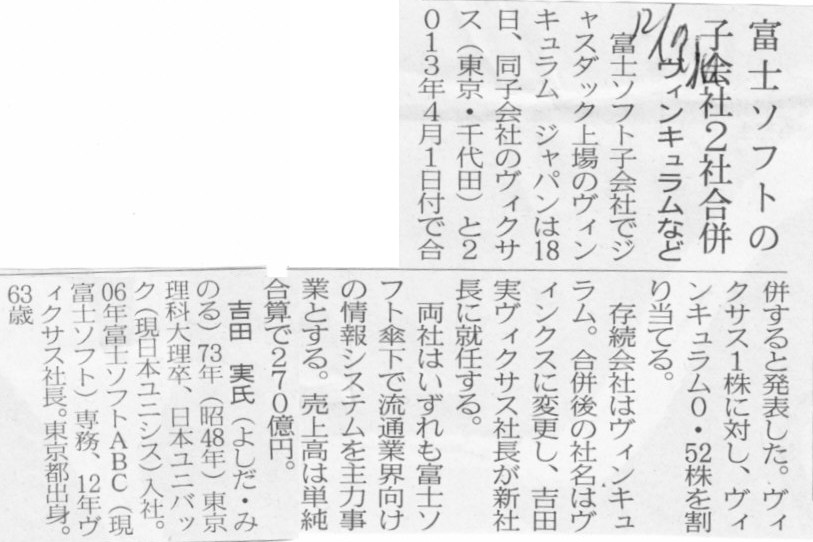 富士ソフトの
子会社2社合併
ヴィンキュラムなど
富士ソフト子会社でジ
ャスダック上場のヴィン
キュラム ジャパンは18
日、同子会社のヴィクサ
ス(東京・千代田)と2
013年4月1日付で合
併すると発表した。ヴィ
クサス1株に対し、ヴィ
ンキュラム0・52株を割
り当てる。
存続会社はヴィンキュ
ラム。合併後の社名はヴ
ィンクスに変更し、吉田
実ヴィクサス社長が新社
長に就任する。
両社はいずれも富士ソ
フト傘下で流通業界向け
の情報システムを主力事
業とする。売上高は単純
合算で270億円。
吉田 実氏(よしだ・み
のる)73年(昭48年)東京
理科大理卒、日本ユニバッ
ク(現日本ユニシス)入社。
06年富士ソフトABC(現
富士ソフト)専務、12年ヴ
ィクサス社長。東京都出身。
63歳